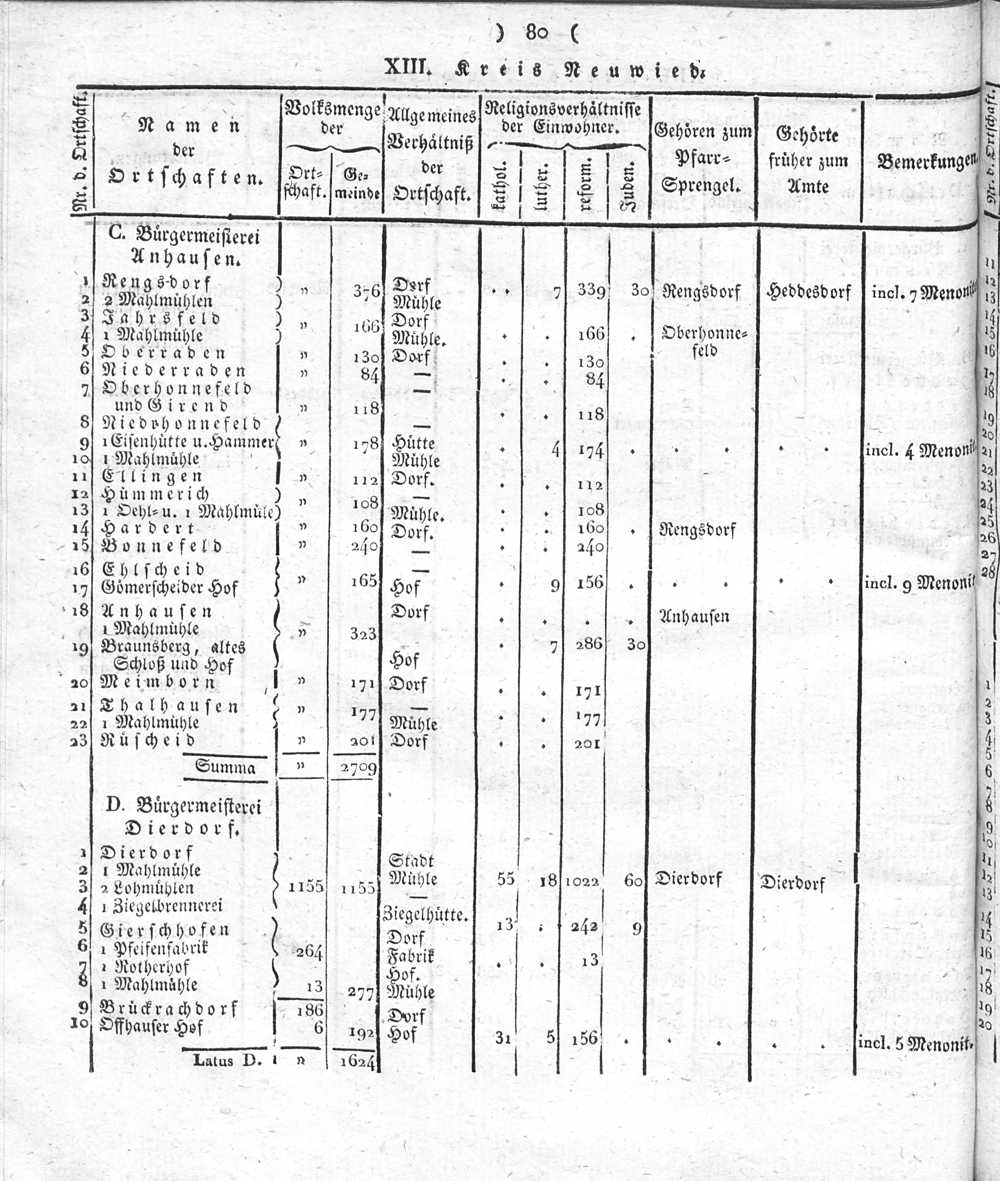 ) 80 (
XIII. Kreis Neuwied.
Nr. d. Ortschaft.
Namen der Ortschaften.
Volksmenge der
Ortschaft.
Gemeinde
Allgemeines Verhältniß der Ortschaft.
Religionsverhältnisse der Einwohner.
kathol.
luther.
reform.
Juden.
Gehören zum Pfarr-Sprengel.
Gehörte früher zum Amte
Bemerkungen.
C. Bürgermeisterei
Anhausen.
1 Rengsdorf ) „ 376 Dorf . . 7 339 30 Rengsdorf Heddesdorf incl. 7 Menonit
2 2 Mahlmühlen ) Mühle
3 Jahrsfeld ) „ 166 Dorf . . 166 . Oberhonne-
4 1 Mahlmühle ) Mühle. feld
5 Oberraden „ 130 Dorf . . 130
6 Niederraden „ 84 — . . 84
7 Oberhonnefeld —
und Girend „ 118 . . 118
8 Niedrhonnefeld —
9 1 Eisenhütte u. Hammer „ 178 Hütte . 4 174 . . . . incl. 4 Menonit
10 1 Mahlmühle Mühle
11 Ellingen „ 112 Dorf. . . 112
12 Hümmerich ) „ 108 — . . 108
13 1 Oehl- u. 1 Mahlmüle ) Mühle.
14 Hardert „ 160 Dorf. . . 160 . Rengsdorf
15 Bonnefeld „ 240 — . . 240
16 Ehlscheid —
17 Gömerscheider Hof „ 165 Hof . 9 156 . . . . incl. 9 Menonit
18 Anhausen Dorf . . . . Anhausen
1 Mahlmühle „ 323
19 Braunsberg, altes . 7 286 30
Schloß und Hof Hof
20 Meimborn „ 171 Dorf . . 171
21 Thalhausen „ 177 — . . 177
22 1 Mahlmühle Mühle
23 Rüscheid „ 201 Dorf 201
Summa „ 2709
D. Bürgermeisterei
Dierdorf.
1 Dierdorf Stadt
2 1 Mahlmühle Mühle
3 2 Lohmühlen 1155 1155 — 55 18 1022 60 Dierdorf Dierdorf
4 1 Ziegelbrennerei Ziegelhütte.
5 Gierschhofen Dorf 13 . 242 9
6 1 Pfeifenfabrik 264 Fabrik
7 1 Rotherhof Hof. . . 13
8 1 Mahlmühle 13 277 Mühle
9 Brückrachdorf 186 Dorf
10 Offhauser Hof 6 192 Hof 31 5 156 . . . . incl. 5 Menonit.
Latus D. „ 1624
Nr. d. Ortschaft.
11
12
13
14
15
16
17
18
19
20
21
22
23
24
25
26
27
28
1
2
3
4
5
6
7
8
9
10
11
12
13
14
15
16
17
18
19
20